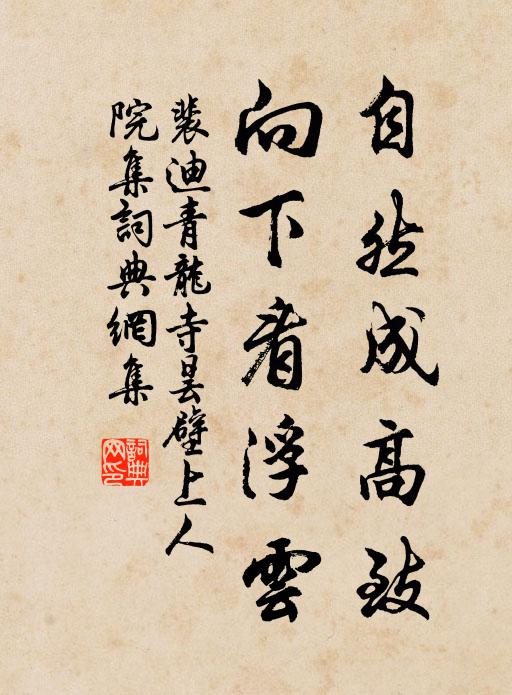 自然成高致
向下看浮雲
裴迪青龍寺曇壁上人
院集詞典網集
詞典網印